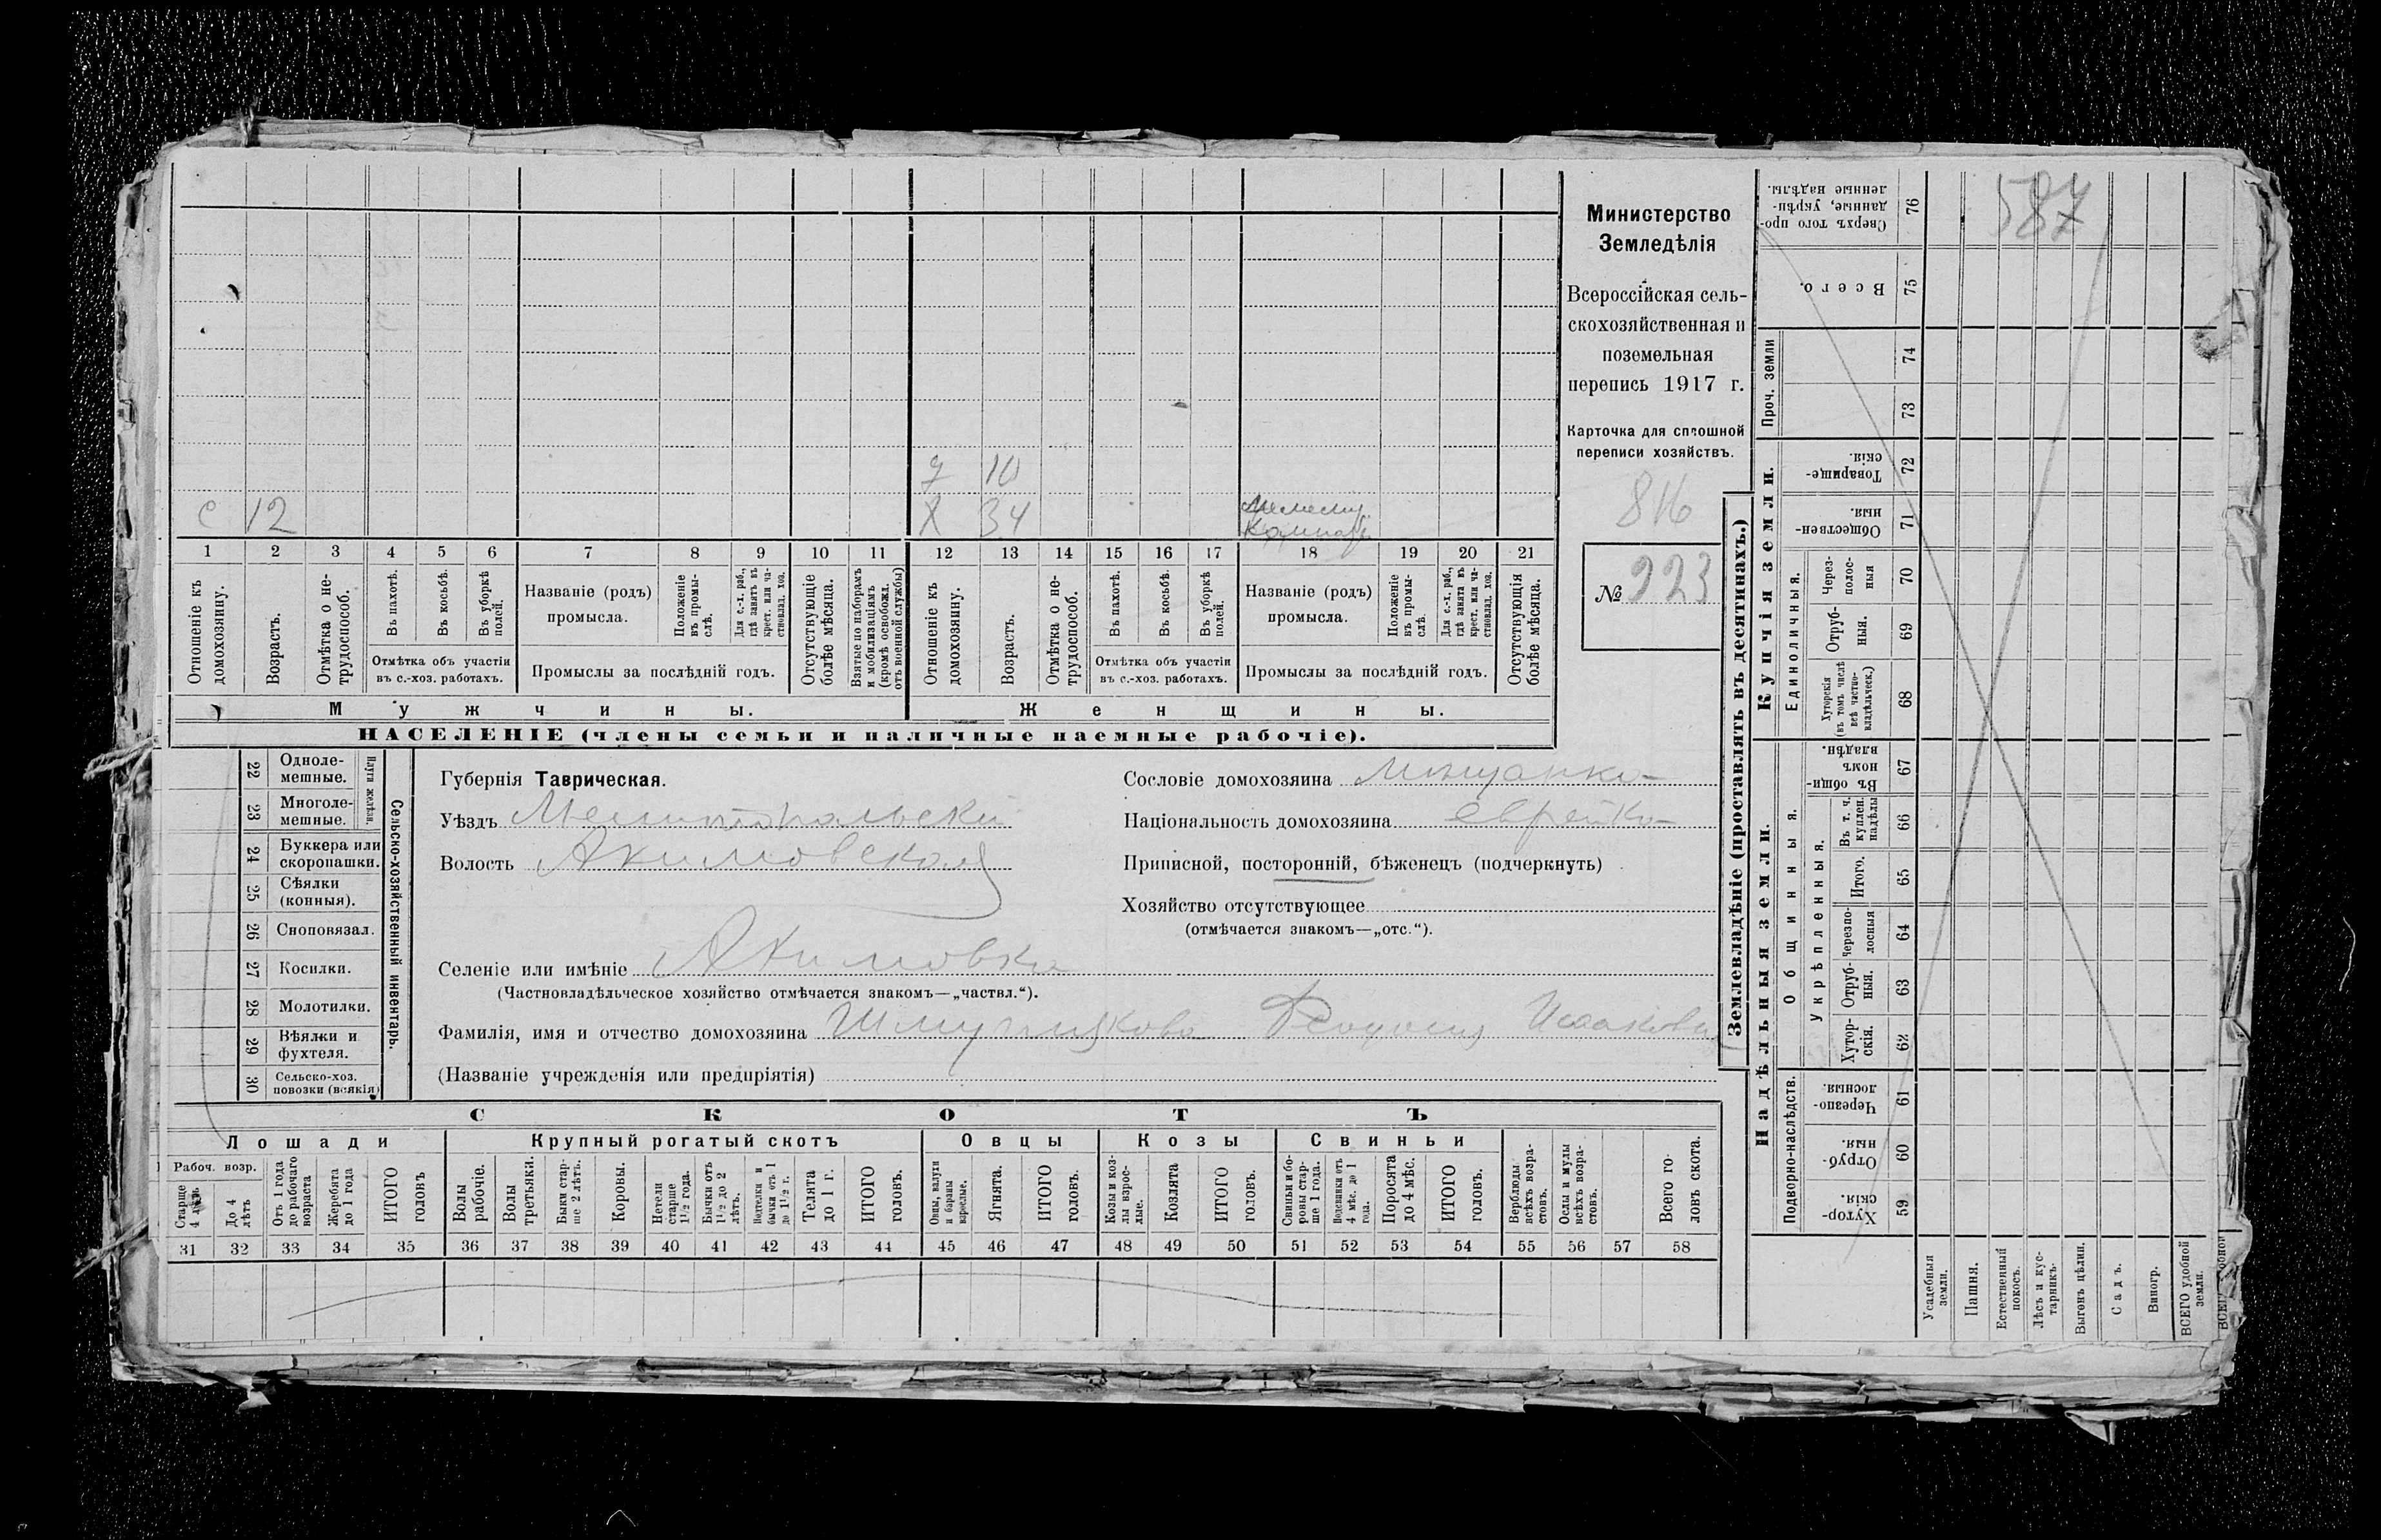 Министерство
Земледѣлія
Всероссійская сель-
скохозяйственная и
поземельная
перепись 1917 г.
Карточка для сплошной
переписи хозяйствъ.
816
№ 923
587
д 10
с 12
Х 34
1 2 3 4 5 6 7 8 9 10 11 12 13 14 15 16 17 18 19 20 21
Отношеніе къ домохозяину.
Возрастъ.
Отмѣтка о не-трудоспособ.
Въ пахотѣ.
Въ косьбѣ.
Въ уборкѣ полей.
Отмѣтка объ участіи
въ с.-хоз. работахъ.
Названіе (родъ)
промысла.
Положеніе въ промы-слѣ.
Для с.-х. раб., гдѣ занятъ въ крест. или ча-стновлад. хоз.
Промыслы за послѣдній годъ.
Отсутствующіе болѣе мѣсяца.
Взятые по наборамъ и мобилизаціямъ (кромѣ освобожд. отъ военной службы)
Отношеніе къ домохозяину.
Возрастъ.
Отмѣтка о не-трудоспособ.
Въ пахотѣ.
Въ косьбѣ.
Въ уборкѣ полей.
Отмѣтка объ участіи
въ с.-хоз. работахъ.
Названіе (родъ)
промысла.
Положеніе въ промы-слѣ.
Для с.-х. раб., гдѣ занята въ крест. или ча-стновлад. хоз.
Промыслы за послѣдній годъ.
Отсутствующія болѣе мѣсяца.
Мужчины.
Женщины.
НАСЕЛЕНІЕ (члены семьи и наличные наемные рабочіе).
Сельско-хозяйственный инвентарь.
Плуги желѣзн.
22 Одноле-мешные.
23 Многоле-мешные.
24 Буккера или скоропашки.
25 Сѣялки (конныя).
26 Сноповязал.
27 Косилки.
28 Молотилки.
29 Вѣялки и фухтеля.
30 Сельско-хоз. повозки (всякія)
Губернія Таврическая.
Уѣздъ Мелитопольскій
Волость Акимовская
Селеніе или имѣніе Акимовка
(Частновладѣльческое хозяйство отмѣчается знакомъ—„частвл.“).
Фамилія, имя и отчество домохозяина
(Названіе учрежденія или предпріятія)
Сословіе домохозяина мѣщанка
Національность домохозяина еврейка
Приписной, посторонній, бѣженецъ (подчеркнуть)
Хозяйство отсутствующее
(отмѣчается знакомъ—„отс.“).
СКОТЪ
Лошади
Крупный рогатый скотъ
Овцы
Козы
Свиньи
Рабоч. возр.
Старше 4 лѣтъ
До 4 лѣтъ
Отъ 1 года до рабочаго возраста
Жеребята до 1 года
ИТОГО головъ
Волы рабочіе.
Волы третьяки.
Быки стар-ше 2 лѣтъ.
Коровы.
Нетели старше 1½ года.
Бычки отъ 1½ до 2 лѣтъ.
Подтелки и бычки отъ 1 до 1½ г.
Телята до 1 г.
ИТОГО головъ.
Овцы, валухи и бараны взрослые.
Ягнята.
ИТОГО головъ.
Козы и коз-лы взрос-лые.
Козлята
ИТОГО головъ.
Свиньи и бо-ровы стар-ше 1 года.
Подсвинки отъ 4 мѣс. до 1 года.
Поросята до 4 мѣс.
ИТОГО головъ.
Верблюды всѣхъ возра-стовъ.
Ослы и мулы всѣхъ возра-стовъ.
Всего го-ловъ скота.
31 32 33 34 35 36 37 38 39 40 41 42 43 44 45 46 47 48 49 50 51 52 53 54 55 56 57 58
Землевладѣніе (проставлять въ десятинахъ.)
Надѣльныя земли.
Купчія земли.
Проч. земли
Подворно-наслѣдств.
Общинныя.
Укрѣпленныя.
Единоличныя.
Сверхъ того про-данные, укрѣп-ленные надѣлы. 76
Всего. 75
74
73
Товарище-скія. 72
Обществен-ныя. 71
Через-полос-ныя 70
Отруб-ныя. 69
Хуторскія (въ томъ числѣ всѣ частно-владѣльческ.) 68
Въ общи-номъ владѣн. 67
Въ т. ч. куплен. надѣлы 66
Итого. 65
Черезпо-лосныя 64
Отруб-ныя. 63
Хутор-скія. 62
Черезпо-лосныя. 61
Отруб-ныя. 60
Хутор-скія. 59
Усадебныя земли.
Пашня.
Естественный покосъ.
Лѣсъ и кус-тарникъ.
Выгонъ цѣлин.
Садъ.
Виногр.
ВСЕГО удобной земли.